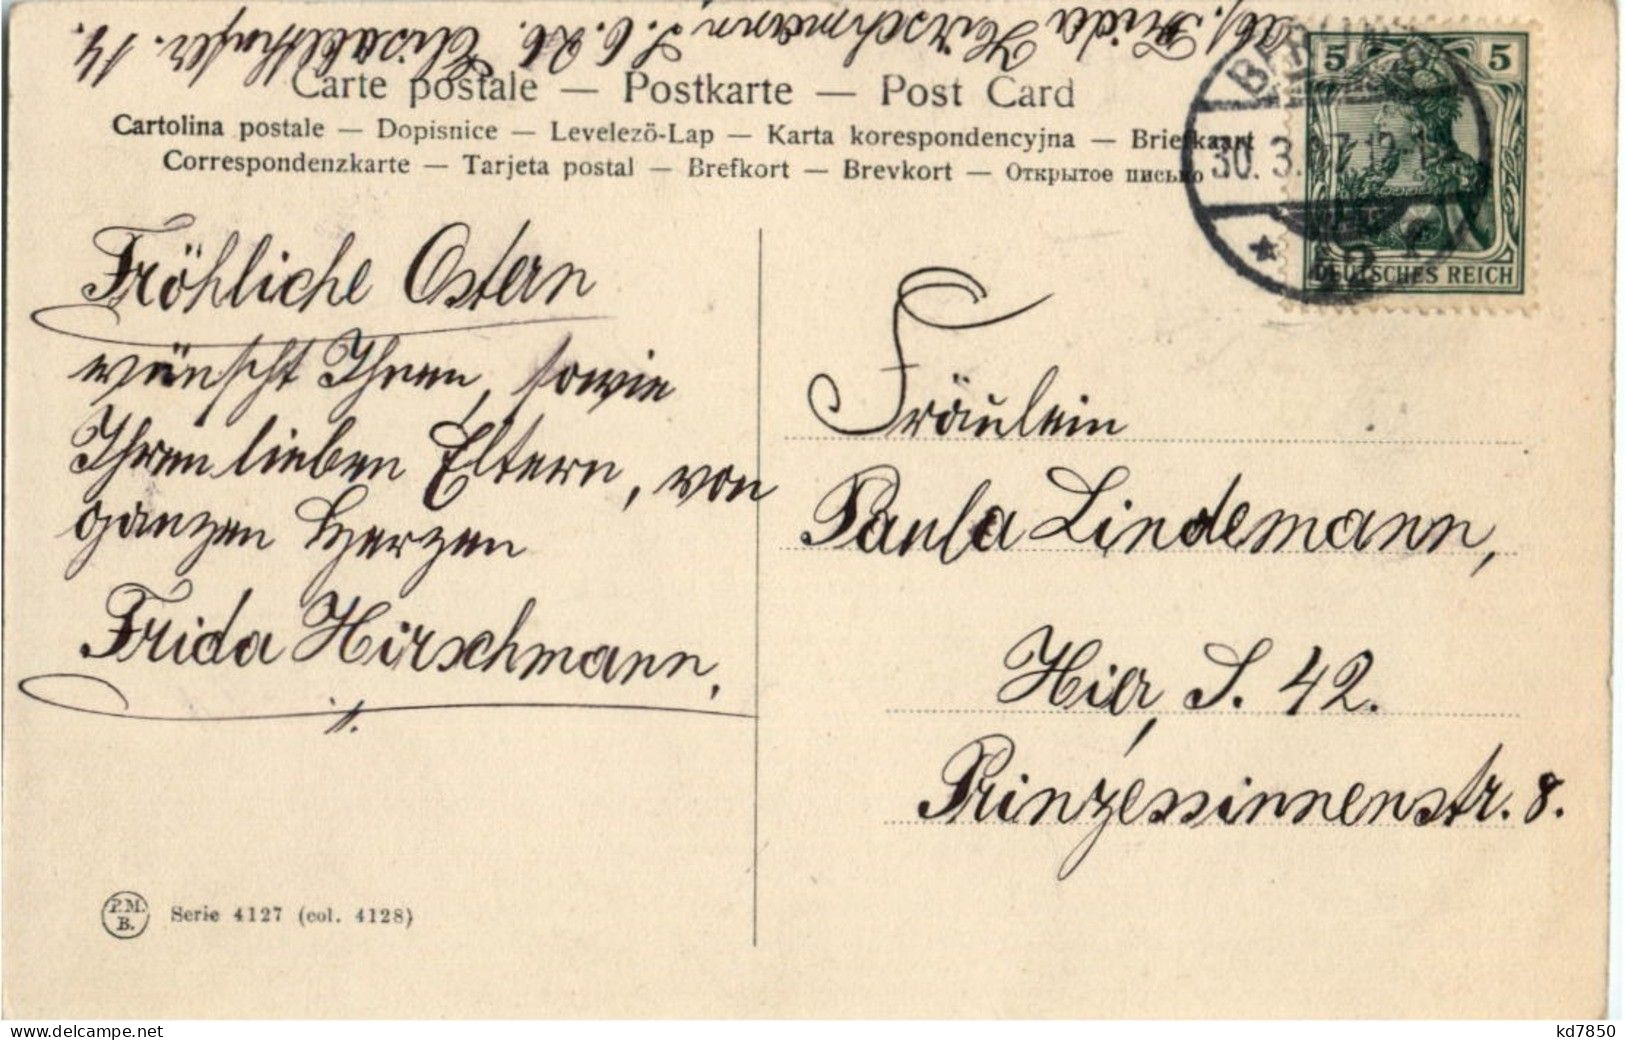 Abs. Frida Hirschmann S. 6. Elisabethufer. 14.
Carte postale — Postkarte — Post Card
Cartolina postale — Dopisnice — Levelezö-Lap — Karta korespondencyjna — Briefkaart
Correspondenzkarte — Tarjeta postal — Brefkort — Brevkort — Открытое письмо
BERLIN
30. 3. 7. 12-1
* 42
5 5
DEUTSCHES REICH
Fröhliche Ostern
wünscht Ihnen, sowie
Ihren lieben Eltern, von
ganzen Herzen
Frida Hirschmann,
Fräulein
Paula Lindemann,
Hier, S. 42.
Prinzessinnenstr. 8.
P.M.
B.
Serie 4127 (col. 4128)
www.delcampe.net
kd7850